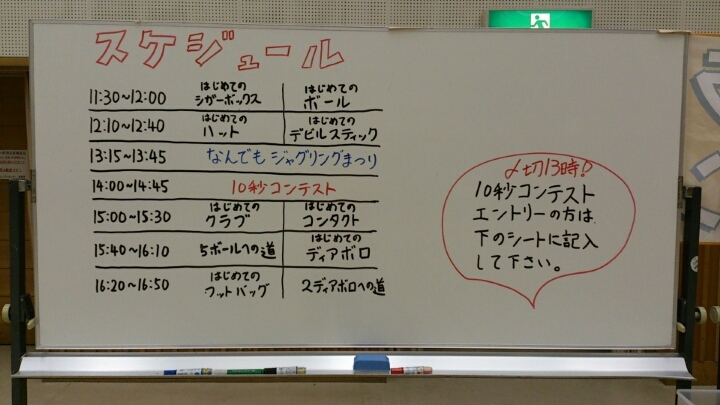 スケジュール
11:30~12:00 はじめての シガーボックス はじめての ボール
12:10~12:40 はじめての ハット はじめての デビルスティック
13:15~13:45 なんでもジャグリングまつり
14:00~14:45 10秒コンテスト
15:00~15:30 はじめての クラブ はじめての コンタクト
15:40~16:10 5ボールへの道 はじめての ディアボロ
16:20~16:50 はじめての フットバッグ 2ディアボロへの道
〆切13時!?
10秒コンテスト
エントリーの方は
下のシートに記入
して下さい。